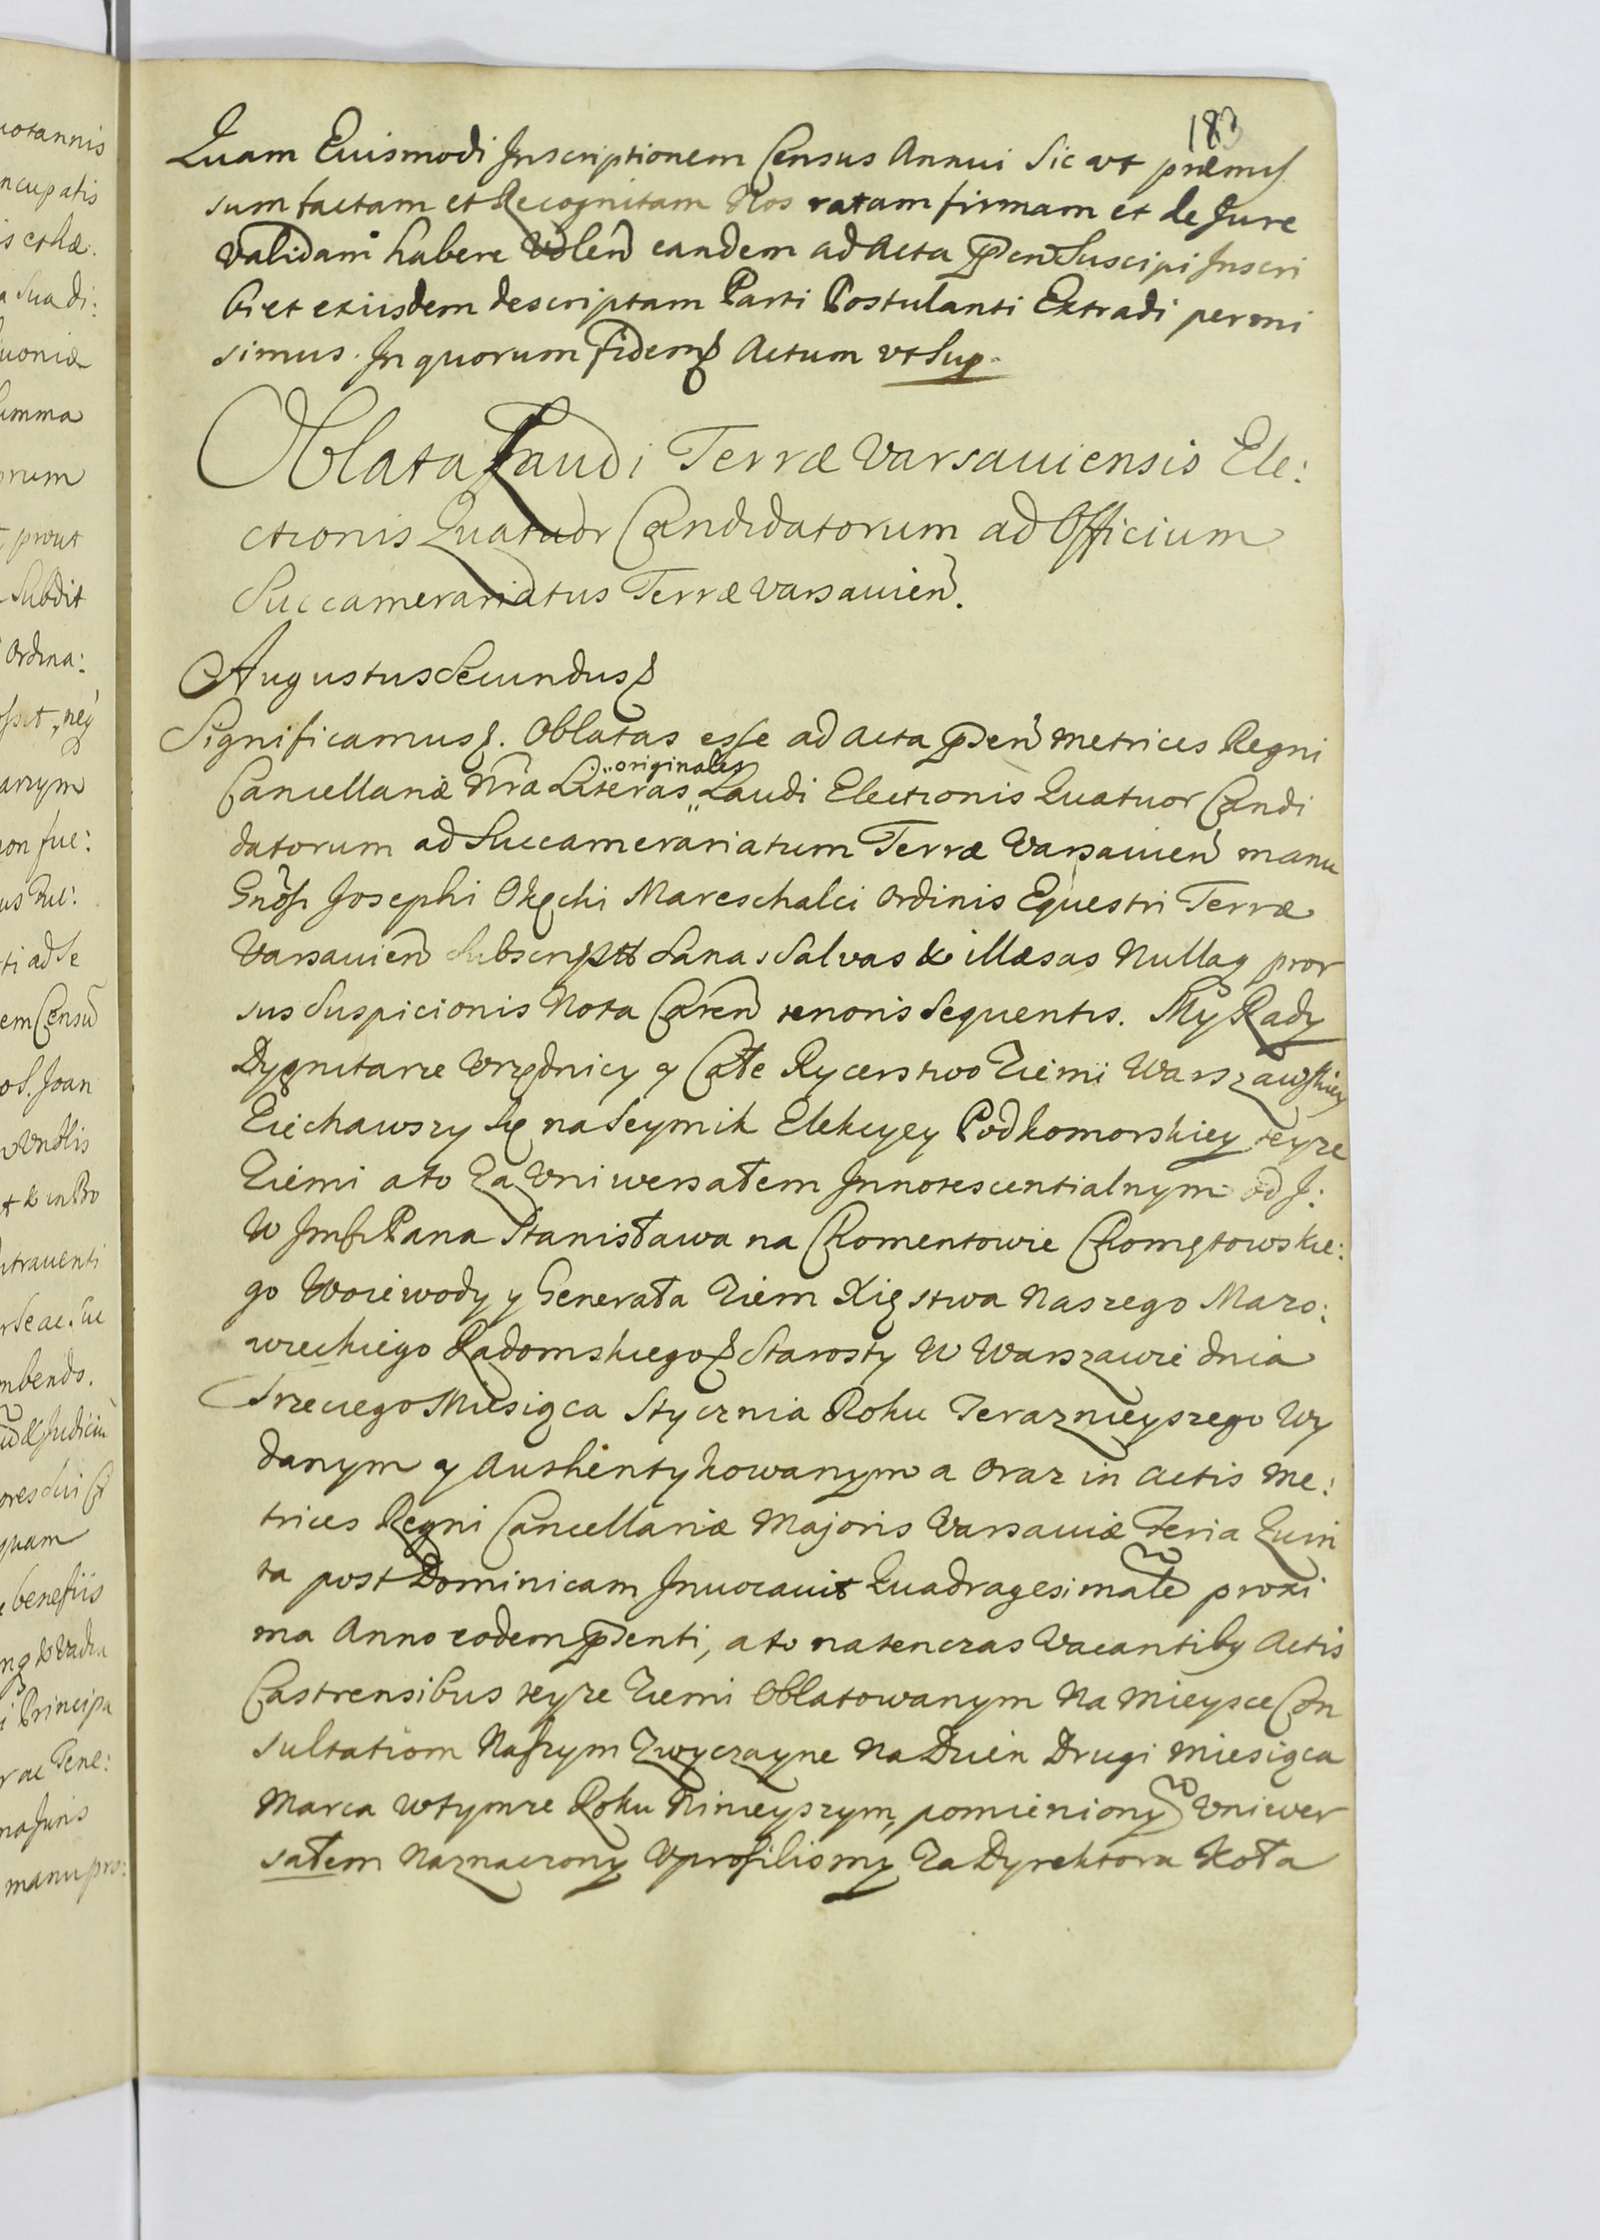 183
Quam Euismodi Inscriptionem Census Annui Sic vt præmis
sum factam et Recognitam Nos ratam firmam et de Jure
validam habere Volen eandem ad Acta pñ Suscipi Inscri
bi et exiisdem descriptam Parti Postulanti Extradi permi
simus. In quorum fidem Actum vt Sup.
Oblata Laudi Terræ Varsauiensis Ele:
ctionis Quatuor Candidatorum ad Officium
Succamerariatus Terræ Varsauien.
Augustus Secundus
Significamus. Oblatas esse ad Acta pñ Metrices Regni
Cancellariæ Nrã Literas originales Laudi Electionis Quatuor Candi
datorum ad Succamerariatum Terræ Varsauien manu
Gnõsi Josephi Okęcki Mareschalci Ordinis Equestri Terræ
Varsauien Subscriptt Sanas Salvas & illæsas Nullaq pror
sus Suspicionis Nota Caren tenoris Sequentis. My Rady
Dygnitarze Vrzędnicy y Całe Rycerstwo Ziemi Warszawskiey
Ziechawszy Się na Seymik Elekcyey Podkomorskiey teyze
Ziemi a to Za Vniwersałem Innotescentialnym od J:
W Jmsci Pana Stanisława na Chomentowie Chomętowskie:
go Woiewody y Generała Ziem Xięstwa Naszego Mazo:
wieckiego Radomskiego Starosty W Warszawie dnia
Trzeciego Miesiąca Stycznia Roku Terazniéyszego Wy
danym y Authentykowanym a Oraz in Actis Me:
trices Regni Cancellariæ Majoris Varsauiæ Feria Quin
ta post Dominicam Inuocauit Quadragesimale proxi
ma Anno eodem pñti, a to natenczas Vacantiby Actis
Castrensibus teyze Ziemi Oblatowanym Na Mieysce Con
sultatiom Naszym Zwyczayne Na Dzien Drugi Miesiąca
Marca W tymze Roku Ninieyszym, pomieniony Vniwer
sałem Naznaczony Vprosilismy Za Dyrektora Koła